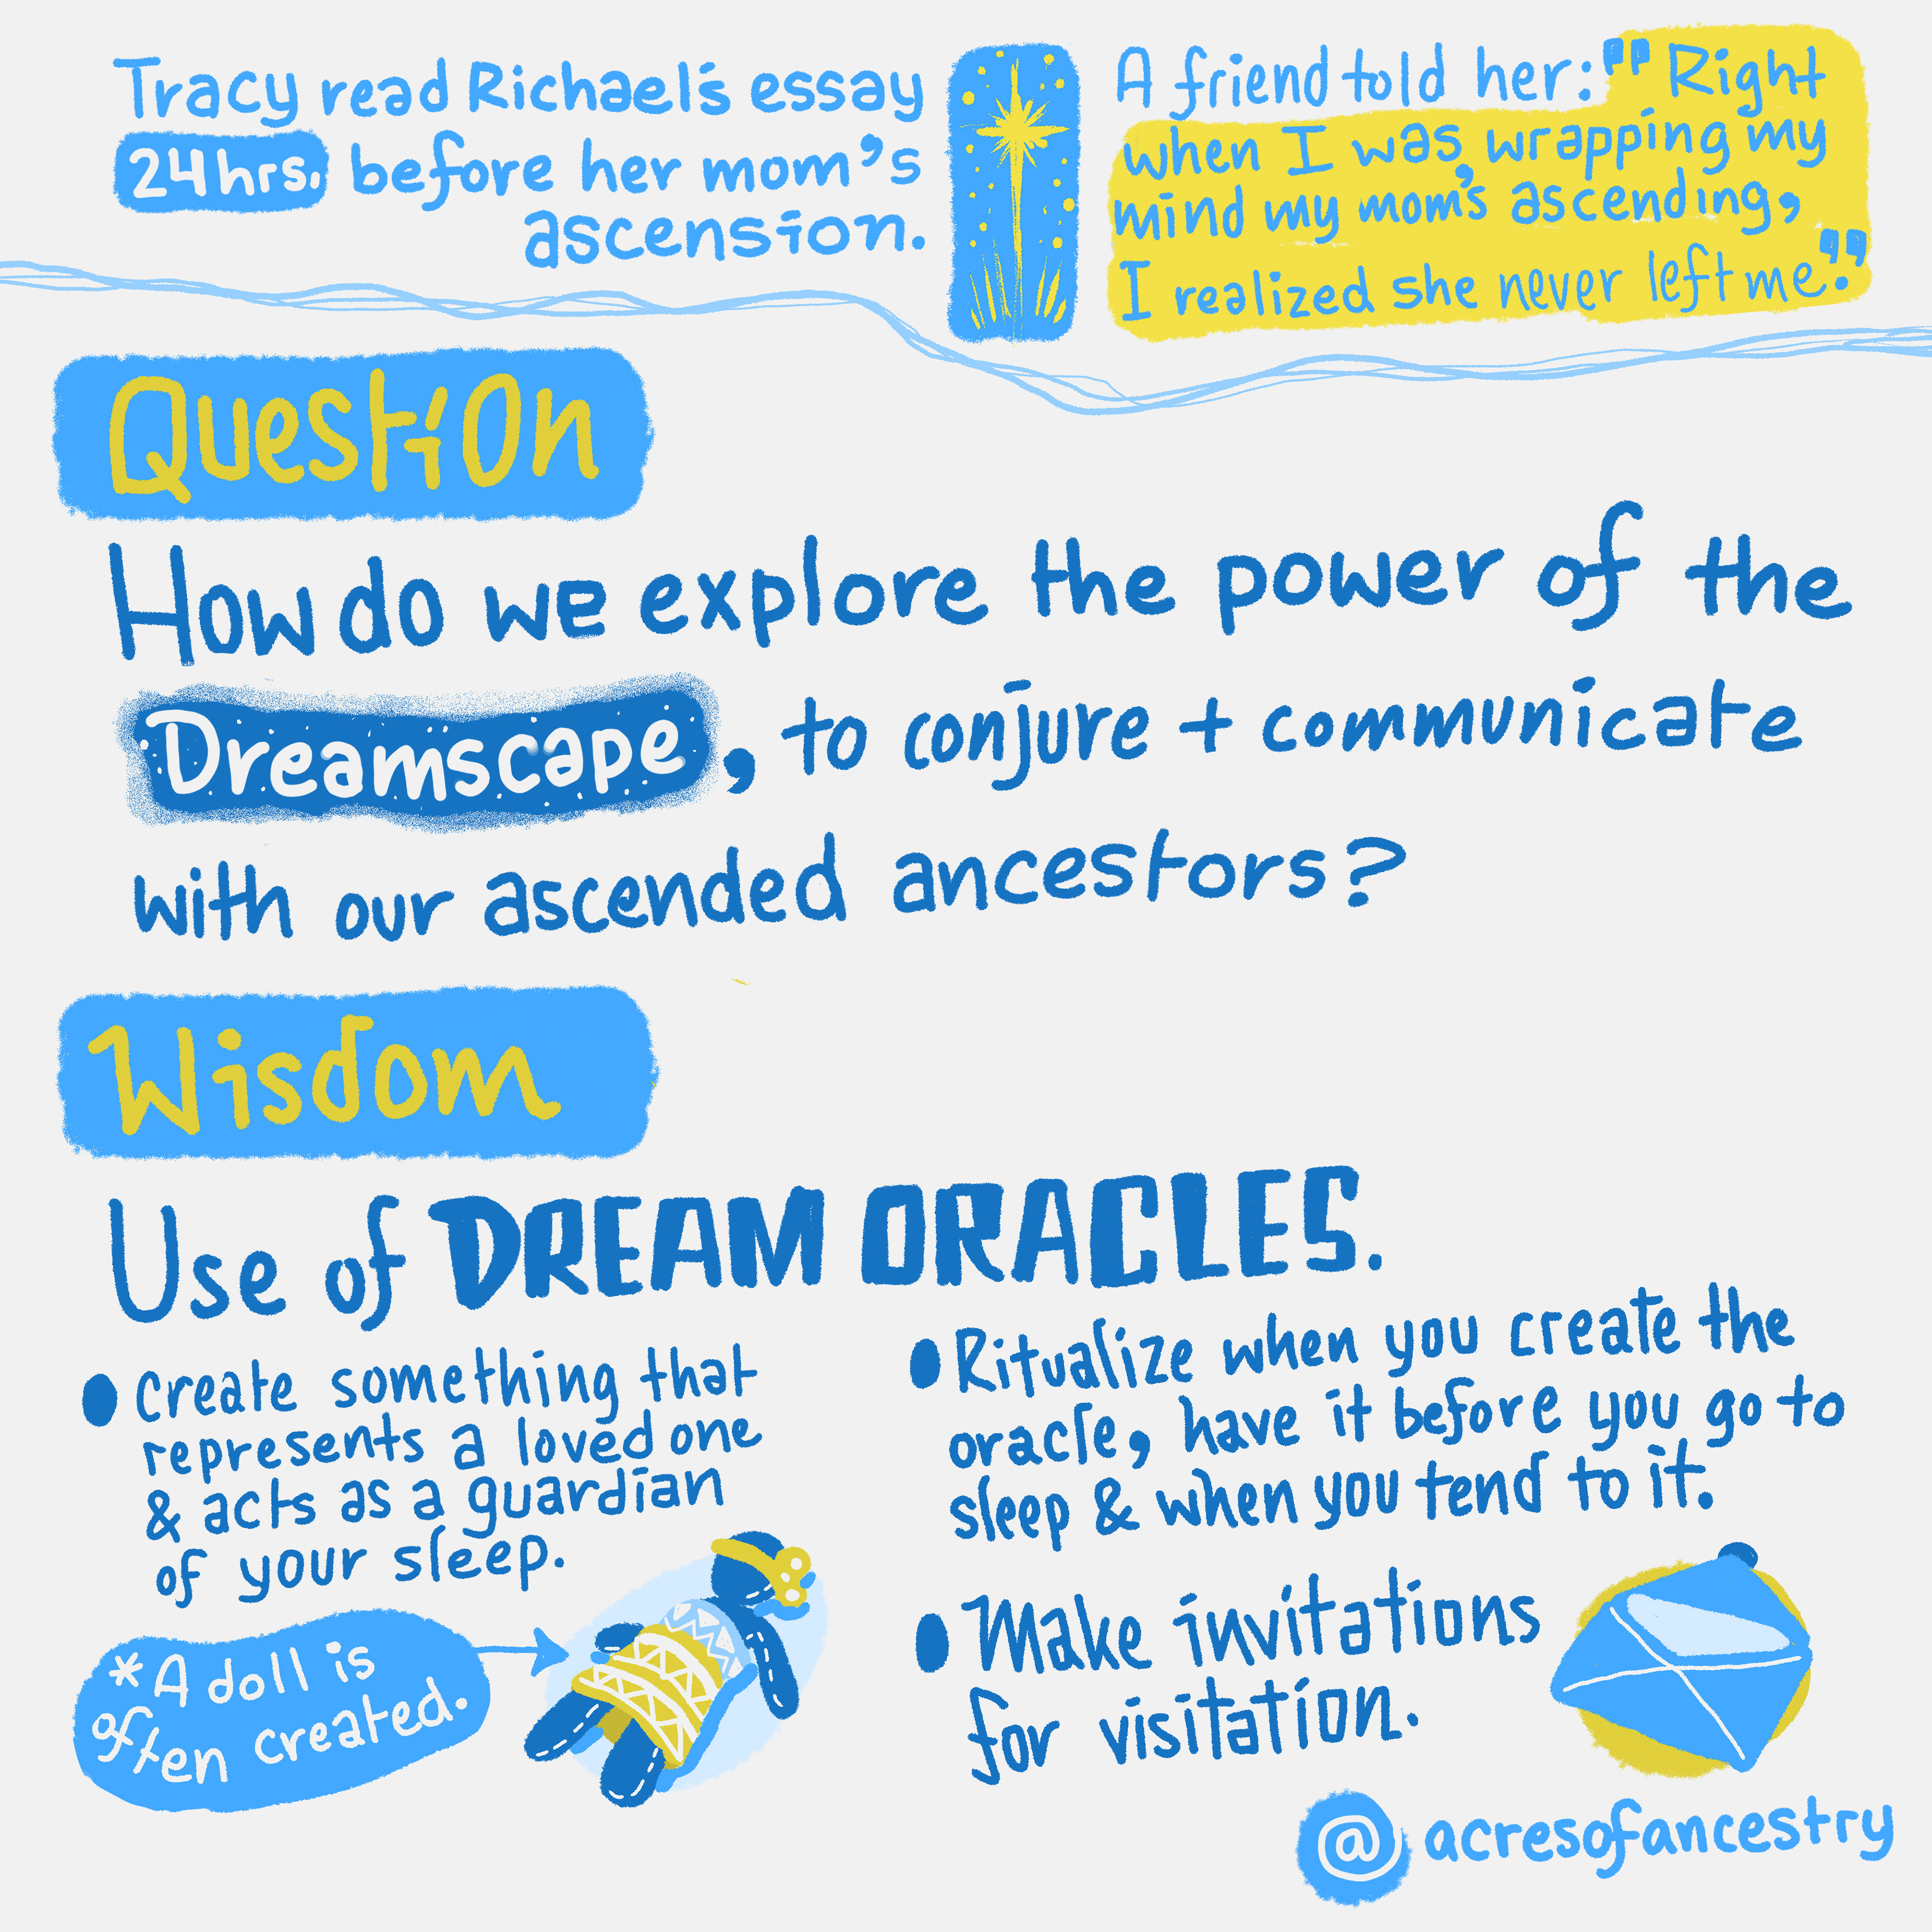 Tracy read Richael's essay
24hrs. before her mom's
ascension.
A friend told her: "Right
when I was, wrapping my
mind my mom's ascending,
I realized she never left me."
Question
How do we explore the power of the
Dreamscape, to conjure + communicate
with our ascended ancestors?
Wisdom
Use of DREAM ORACLES.
● Create something that
represents a loved one
& acts as a guardian
of your sleep.
*A doll is
often created.
● Ritualize when you create the
oracle, have it before you go to
sleep & when you tend to it.
● Make invitations
for visitation.
@acresofancestry